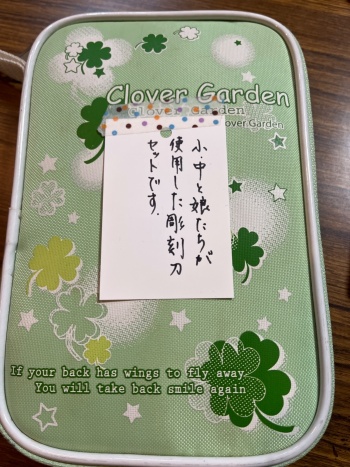 Clover Garden
Clover Garden
lover Garden
小・中と娘たちが
使用した彫刻刀
セットです.
If your back has wings to fly away
You will take back smile again